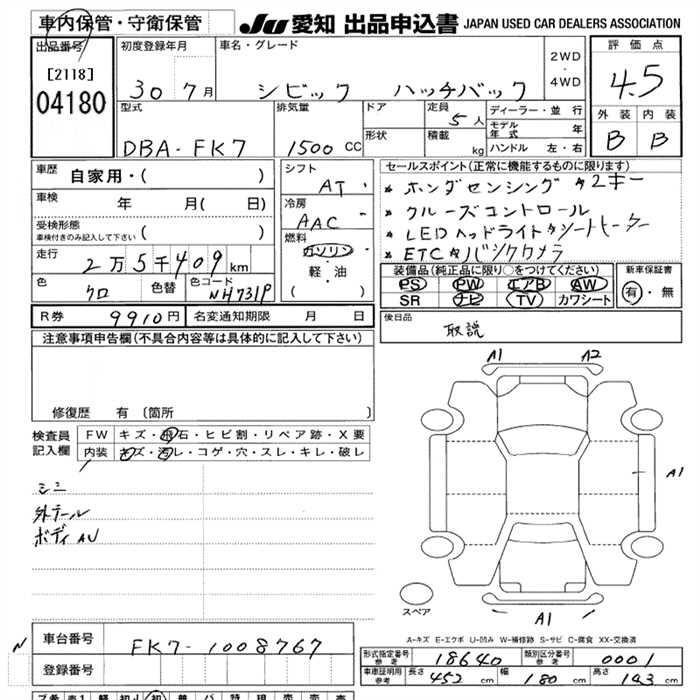 車内保管・守衛保管
JU 愛知 出品申込書 JAPAN USED CAR DEALERS ASSOCIATION
出品番号
[2118]
04180
初度登録年月
30 7月
車名・グレード
シビック ハッチバック
2WD
・
4WD
評価点
4.5
外装 内装
B B
型式
DBA-FK7
排気量
1500 CC
ドア
形状
定員
5人
積載
kg
ディーラー・並行
モデル年式 年
ハンドル 左・右
車歴
自家用・( )
車検
年 月( 日)
受検形態
車検付きのみ記入して下さい ( )
走行
2万5千409km
色
クロ
色替
色コード
NH731P
シフト
AT
冷房
AAC
燃料
ガソリン
・
軽・油
( )
セールスポイント(正常に機能するものに限ります)
* ホンダセンシング タ2キー
* クルーズコントロール
* LEDヘッドライト タシートヒーター
* ETC タバックカメラ
装備品(純正品に限り○をつけてください)
PS PW エアB AW
SR ナビ TV カワシート
新車保証書
有・無
R券 9910円
名変通知期限 月 日
後日品
取説
注意事項申告欄(不具合内容等は具体的に記入して下さい)
修復歴 有〔箇所 〕
検査員
記入欄
FW キズ・飛石・ヒビ割・リペア跡・X要
内装 キズ・汚レ・コゲ・穴・スレ・キレ・破レ
シミ
外テール
ボディAU
A1 A2
A1
A1
スペア
A-キズ E-エクボ U-凹み W-補修跡 S-サビ C-腐食 XX-交換済
N
車台番号
FK7-1008767
登録番号
形式指定番号
参考
18640
類別区分番号
参考
0001
車庫証明用
参考
長さ 452 cm 幅 180 cm 高さ 143 cm